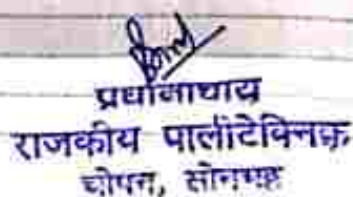 प्रधानाचार्य
राजकीय पालीटेक्निक
चोपन, सोनभद्र